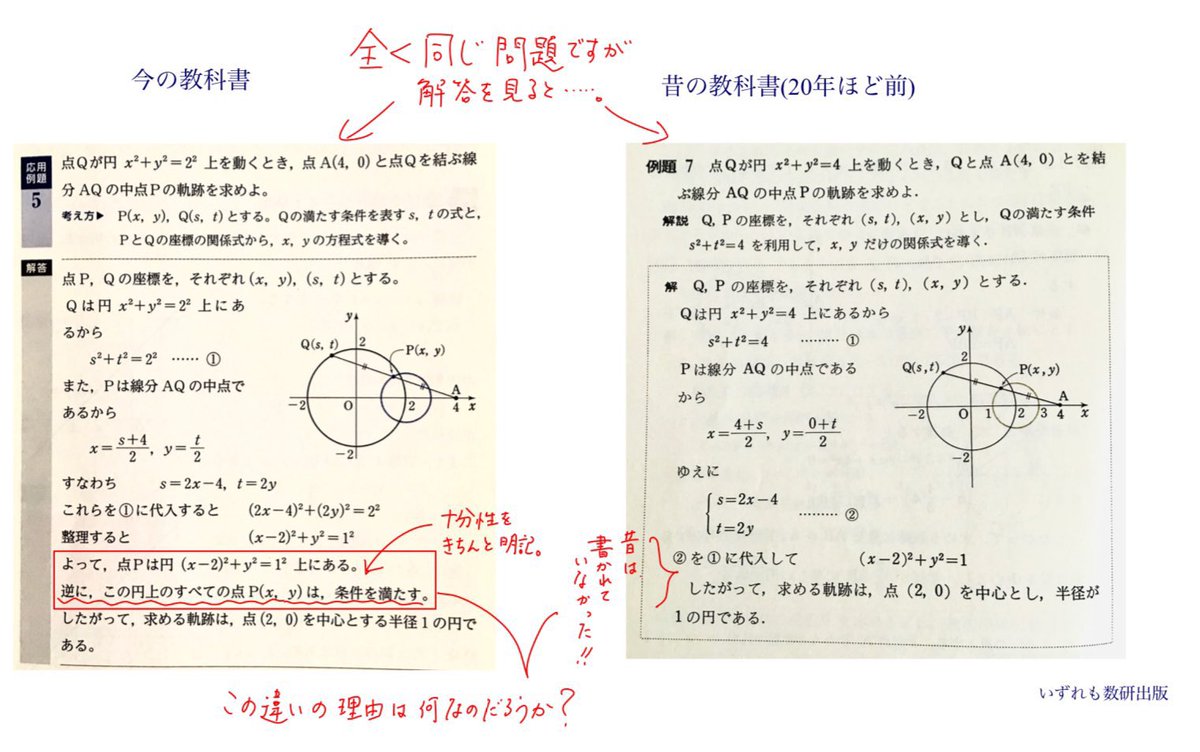 全く同じ問題ですが
解答を見ると……。
今の教科書
昔の教科書(20年ほど前)
応用
例題
5
点Qが円 x²+y²=2² 上を動くとき，点 A(4, 0) と点Qを結ぶ線
分AQの中点Pの軌跡を求めよ。
考え方▶ P(x, y), Q(s, t) とする。Qの満たす条件を表す s, t の式と，
PとQの座標の関係式から，x, y の方程式を導く。
解答
点P, Q の座標を，それぞれ (x, y), (s, t) とする。
Qは円 x²+y²=2² 上にあ
るから
s²+t²=2² …… ①
また，Pは線分 AQ の中点で
あるから
x=\frac{s+4}{2}, y=\frac{t}{2}
すなわち s=2x-4, t=2y
これらを①に代入すると (2x-4)²+(2y)²=2²
整理すると (x-2)²+y²=1²
よって，点Pは円 (x-2)²+y²=1² 上にある。
逆に，この円上のすべての点 P(x, y) は，条件を満たす。
したがって，求める軌跡は，点(2, 0)を中心とする半径1の円で
ある。
y
Q(s, t)
2
P(x, y)
A
-2
O
2
4
x
-2
十分性を
きちんと明記。
例題 7 点Qが円 x²+y²=4 上を動くとき，Qと点 A(4, 0) とを結
ぶ線分 AQ の中点Pの軌跡を求めよ．
解説 Q, P の座標を，それぞれ (s, t), (x, y) とし，Qの満たす条件
s²+t²=4 を利用して，x, y だけの関係式を導く．
解 Q, P の座標を，それぞれ (s, t), (x, y) とする．
Qは円 x²+y²=4 上にあるから
s²+t²=4 ……… ①
Pは線分 AQ の中点である
から
x=\frac{4+s}{2}, y=\frac{0+t}{2}
ゆえに
s=2x-4
t=2y
……… ②
②を①に代入して (x-2)²+y²=1
したがって，求める軌跡は，点 (2, 0) を中心とし，半径が
1の円である．
y
2
Q(s, t)
P(x, y)
A
-2
O
1
2
3
4
x
-2
昔は
書かれて
いなかった!!
この違いの理由は何なのだろうか？
いずれも数研出版